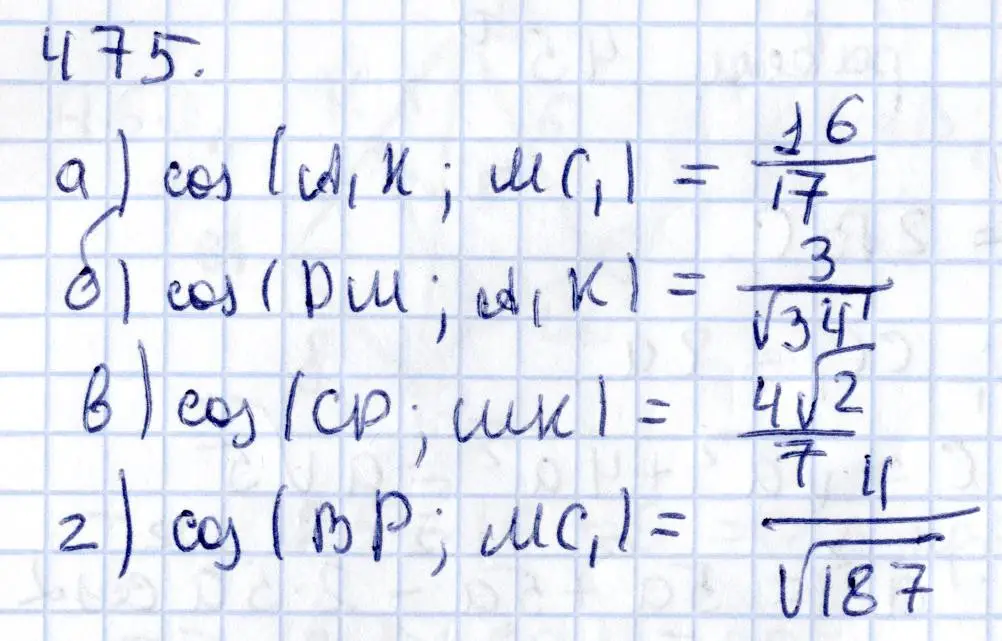 475.
а) cos (A₁K; MC₁) = 16/17
б) cos (DM; A₁K) = 3/√34
в) cos (CP; MK) = 4√2/7
г) cos (BP; MC₁) = 4/√187